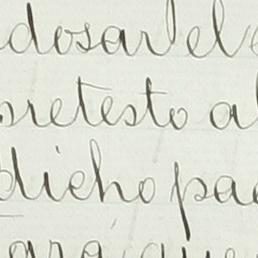 dosar el
pretesto al
dicho pa
ara que